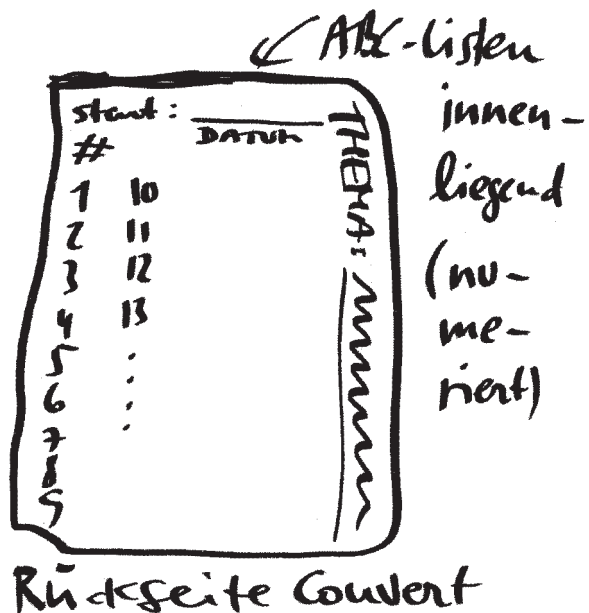 ABC-Listen
innen-
liegend
(nu-
me-
riert)
start: ________
DATUM
#
1 10
2 11
3 12
4 13
5 .
6 .
7 .
8
9
THEMA:
Rückseite Couvert